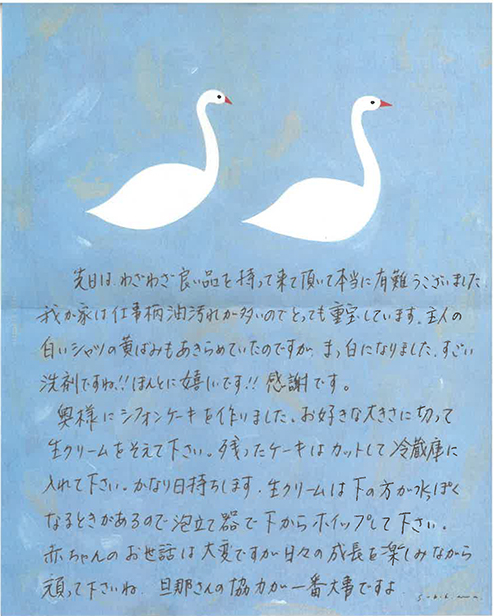 先日は、わざわざ良い品を持って来て頂いて本当に有難うございました
我が家は仕事柄油汚れが多いのでとっても重宝しています。主人の
白いシャツの黄ばみもあきらめていたのですが、まっ白になりました。すごい
洗剤ですね!!ほんとに嬉しいです!!感謝です。
奥様にシフォンケーキを作りました。お好きな大きさに切って
生クリームをそえて下さい。残ったケーキはカットして冷蔵庫に
入れて下さい。かなり日持ちします。生クリームは下の方が水っぽく
なるときがあるので泡立て器で下からホイップして下さい。
赤ちゃんのお世話は大変ですが日々の成長を楽しみながら
頑って下さいね。旦那さんの協力が一番大事ですよ